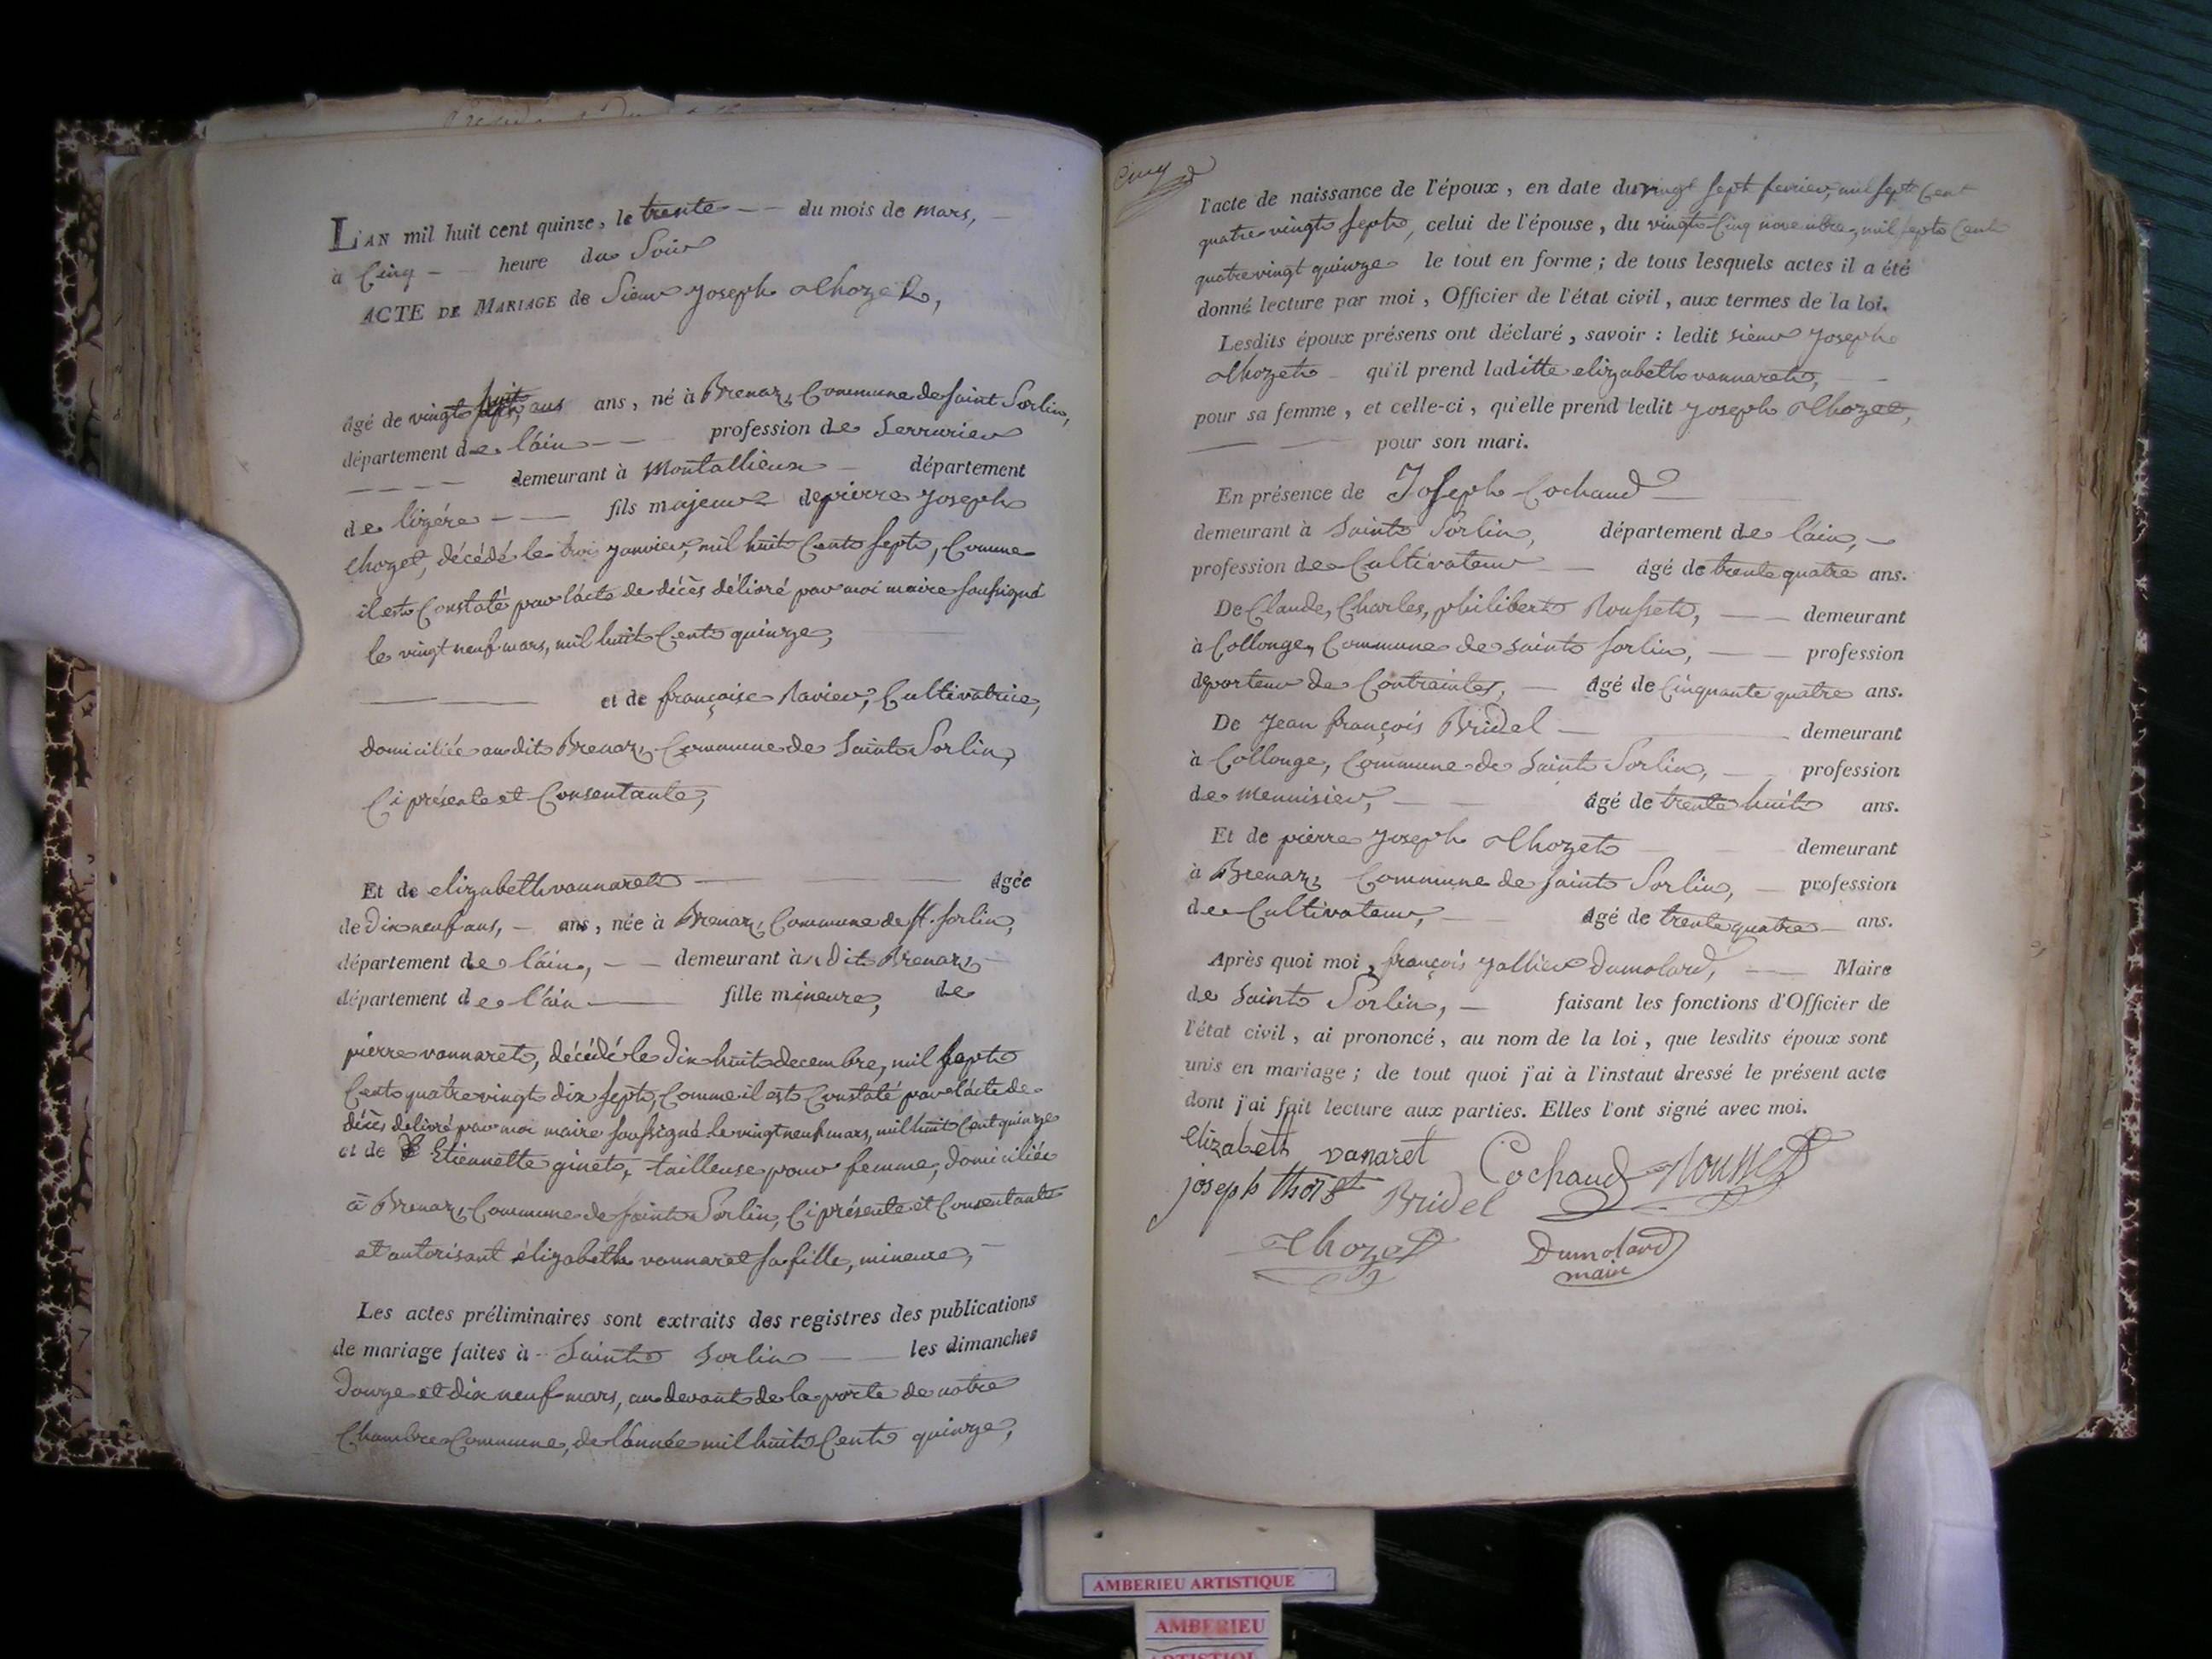 L'AN mil huit cent quinze, le trente du mois de mars,
à Cinq heure du Soir
ACTE DE MARIAGE de Sieur Joseph Thozet,
âgé de vingt huit ans ans, né à Brenaz, Commune de Saint Sorlin,
département de l'ain profession de Serrurier
demeurant à Montallieux département
de l'izére fils majeur de pierre Joseph
thozet, décédé le trois Janvier, mil huit Cent sept, Comme
il est Constaté par l'acte de décès délivré par moi maire soussigné
le vingt neuf mars, mil huit Cent quinze,
et de françoise Ravier, Cultivatrice,
domiciliée au dit Brenaz, Commune de Saint Sorlin,
Ci présente et Consentante,
Et de elizabeth vannaret âgée
de Dix neuf ans, ans, née à Brenaz, Commune de St. Sorlin,
département de l'ain, demeurant à u dit Brenaz
département de l'ain fille mineure, de
pierre vannaret, décédé le dix huit decembre, mil sept
Cent quatre vingt dix sept, Comme il est Constaté par l'acte de
décès délivré par moi maire soussigné le vingt neuf mars, mil huit Cent quinze
et de Etiennette ginet, tailleuse pour femme, domiciliée
à Brenaz, Commune de Saint Sorlin, Ci présente et Consentante
et autorisant élizabeth vannaret sa fille, mineure,
Les actes préliminaires sont extraits des registres des publications
de mariage faites à Saint Sorlin les dimanches
douze et dix neuf mars, au devant de la porte de notre
Chambre Commune, de l'année mil huit Cent quinze,
Cinq
l'acte de naissance de l'époux, en date du vingt sept fevrier, mil sept Cent
quatre vingt sept, celui de l'épouse, du vingt Cinq novembre, mil sept Cent
quatre vingt quinze le tout en forme ; de tous lesquels actes il a été
donné lecture par moi, Officier de l'état civil, aux termes de la loi.
Lesdits époux présens ont déclaré, savoir : ledit sieur Joseph
Thozet qu'il prend laditte elizabeth vannaret,
pour sa femme, et celle-ci, qu'elle prend ledit Joseph Thozet,
pour son mari.
En présence de Joseph Cochaud
demeurant à Saint Sorlin, département de l'ain,
profession de Cultivateur âgé de trente quatre ans.
De Claude, Charles, philibert Rousset, demeurant
à Collonge, Commune de Saint Sorlin, profession
de porteur de Contraintes, âgé de Cinquante quatre ans.
De Jean françois Bridel demeurant
à Collonge, Commune de Saint Sorlin, profession
de menuisier, âgé de trente huit ans.
Et de pierre Joseph Thozet demeurant
à Brenaz, Commune de Saint Sorlin, profession
de Cultivateur, âgé de trente quatre ans.
Après quoi moi, françois Jallier Dumolard, Maire
de Saint Sorlin, faisant les fonctions d'Officier de
l'état civil, ai prononcé, au nom de la loi, que lesdits époux sont
unis en mariage ; de tout quoi j'ai à l'instaut dressé le présent acte
dont j'ai fait lecture aux parties. Elles l'ont signé avec moi.
elizabeth vanaret Cochaud Rousset
joseph thozet Bridel
Thozet Dumolard
maire
AMBERIEU ARTISTIQUE
AMBERIEU
ARTISTIQUE